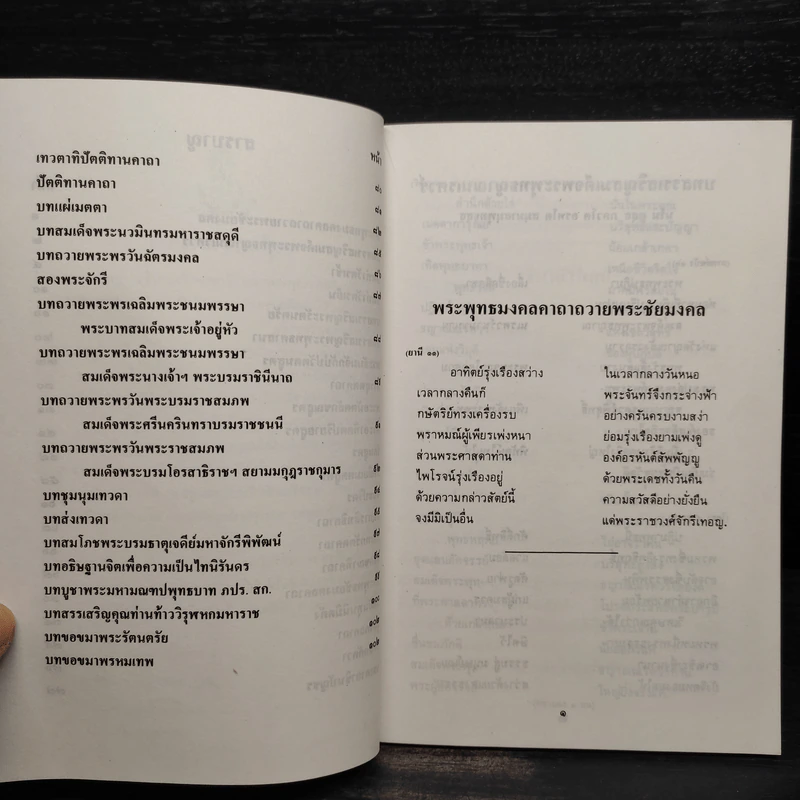 หน้า
เทวตาทิปัตติทานคาถา
ปัตติทานคาถา ๘๐
บทแผ่เมตตา ๘๑
บทสมเด็จพระนวมินทรมหาราชสดุดี ๘๒
บทถวายพระพรวันฉัตรมงคล
สองพระจักรี ๘๖
บทถวายพระพรเฉลิมพระชนมพรรษา
พระบาทสมเด็จพระเจ้าอยู่หัว
บทถวายพระพรเฉลิมพระชนมพรรษา
สมเด็จพระนางเจ้าฯ พระบรมราชินีนาถ
บทถวายพระพรวันพระบรมราชสมภพ
สมเด็จพระศรีนครินทราบรมราชชนนี
บทถวายพระพรวันพระราชสมภพ
สมเด็จพระบรมโอรสาธิราชฯ สยามมกุฎราชกุมาร
บทชุมนุมเทวดา
บทส่งเทวดา
บทสมโภชพระบรมธาตุเจดีย์มหาจักรีพิพัฒน์
บทอธิษฐานจิตเพื่อความเป็นไทนิรันดร
บทบูชาพระมหามณฑปพุทธบาท ภปร. สก.
บทสรรเสริญคุณท่านท้าววิรุฬหกมหาราช ๑๐๐
บทขอขมาพระรัตนตรัย ๑๐๒
บทขอขมาพรหมเทพ ๑๐๒
พระพุทธมงคลคาถาถวายพระชัยมงคล
(ยานี ๑๑)
อาทิตย์รุ่งเรืองสว่าง ในเวลากลางวันหนอ
เวลากลางคืนก็ พระจันทร์จึงกระจ่างฟ้า
กษัตริย์ทรงเครื่องรบ อย่างครันครบงามสง่า
พราหมณ์ผู้เพียรเพ่งหนา ย่อมรุ่งเรืองยามเพ่งดู
ส่วนพระศาสดาท่าน องค์อรหันต์สัพพัญญู
ไพโรจน์รุ่งเรืองอยู่ ด้วยพระเดชทั้งวันคืน
ด้วยความกล่าวสัตย์นี้ ความสวัสดีอย่างยั่งยืน
จงมีมิเป็นอื่น แด่พระราชวงศ์จักรีเทอญ.
๑